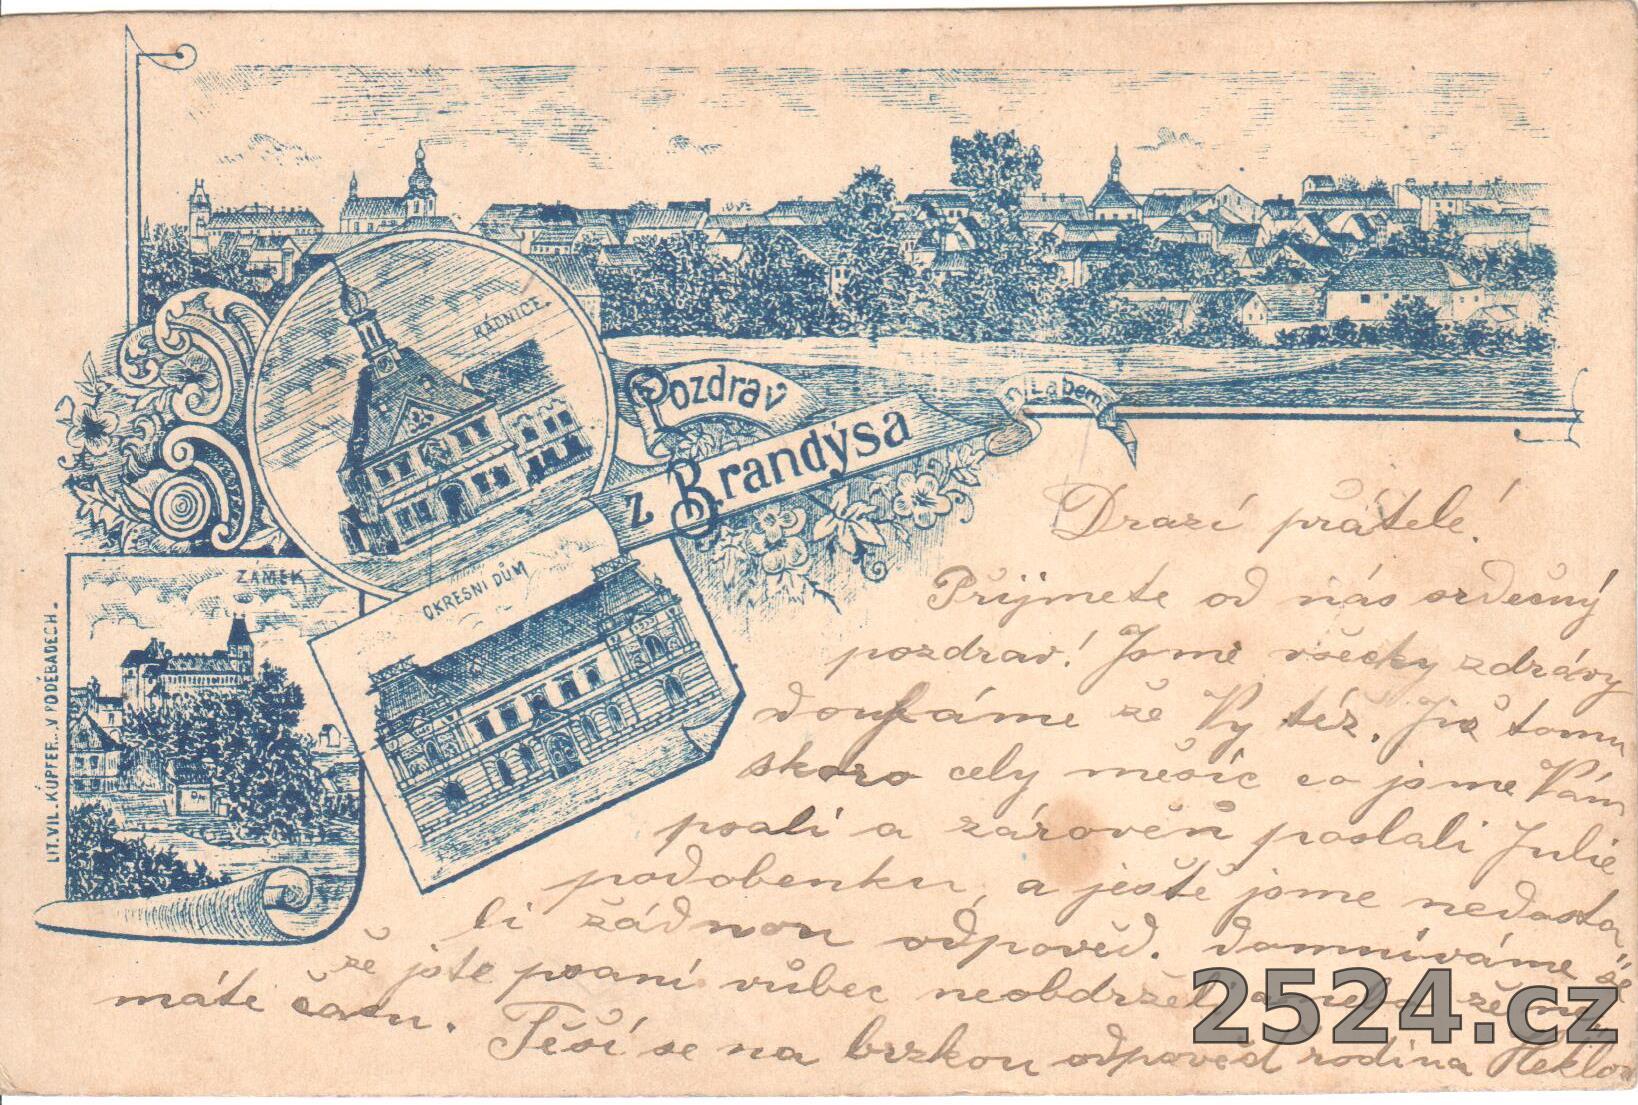 RADNICE.
Pozdrav
z Brandýsa
n/Labem
ZÁMEK
OKRESNI DŮM
LIT. VIL. KÜPFER.., V PODĚBADECH.
Drazí přátelé!
Přijmete od nás srdečný
pozdrav! Jsme všecky zdrávy
doufáme že Vy téz. Již tomu
skoro cely měsíc co jsme Vám
psali a zároveň poslali Julie
podobenku, a ještě jsme nedosta„
li žádnou odpověd. domníváme se
že jste psaní vůbec neobdrželi a nebo že ne„
máte času. Těší se na brzkou odpověd rodina
2524.cz